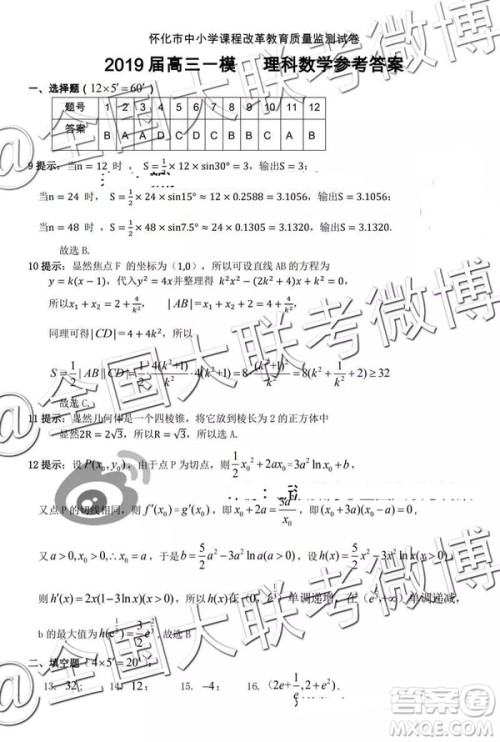 怀化市中小学课程改革教育质量监测试卷
2019 届高三一模 理科数学参考答案
一、选择题（12×5′=60′）
题号 1 2 3 4 5 6 7 8 9 10 11 12
答案 B A A D C A B C B C A B
9 提示：当n=12 时， S=½×12×sin30°=3，输出S=3；
当n=24 时， S=½×24×sin15°≈12×0.2588=3.1056，输出S=3.1056；
当n=48 时， S=½×48×sin7.5°≈24×0.1305=3.1320，输出S=3.1320.
故选 B.
10 提示：显然焦点 F 的坐标为(1,0)，所以可设直线 AB 的方程为
y=k(x−1)，代入y²=4x并整理得 k²x²−(2k²+4)x+k²=0，
所以x₁+x₂=2+4/k²， |AB|=x₁+x₂+2=4+4/k²，
同理可得|CD|=4+4k²，所以
S=½|AB||CD|=½·4(k²+1)/k²·4(k²+1)=8(k²+1/k²+2)≥32
故选 C.
11 提示：显然几何体是一个四棱锥，将其放在棱长为 2 的正方体中
显然2R=2√3，所以R=√3，所以选 A.
12 提示：设P(x₀,y₀)，由于点 P 为切点，则½x₀²+2ax₀=3a²ln x₀+b，
又点 P 的切线相同，则 f′(x₀)=g′(x₀)，即 x₀+2a=3a²/x₀，即 (x₀+3a)(x₀−a)=0，
又 a>0,x₀>0,∴x₀=a，于是b=5/2a²−3a²ln a(a>0)，设 h(x)=5/2x²−3x²ln x(x>0)，
则 h′(x)=2x(1−3ln x)(x>0)，所以 单调递增，在 单调递减，
b 的最大值为 ，故选 B
二、填空题（4×5′=20′）
13. 32； 14. 12； 15. −4； 16. (2e+1/e,2+e²).
@全国大联考微博
@全国大联考微博
@全国大联考微博
答案圈
MXQE.COM